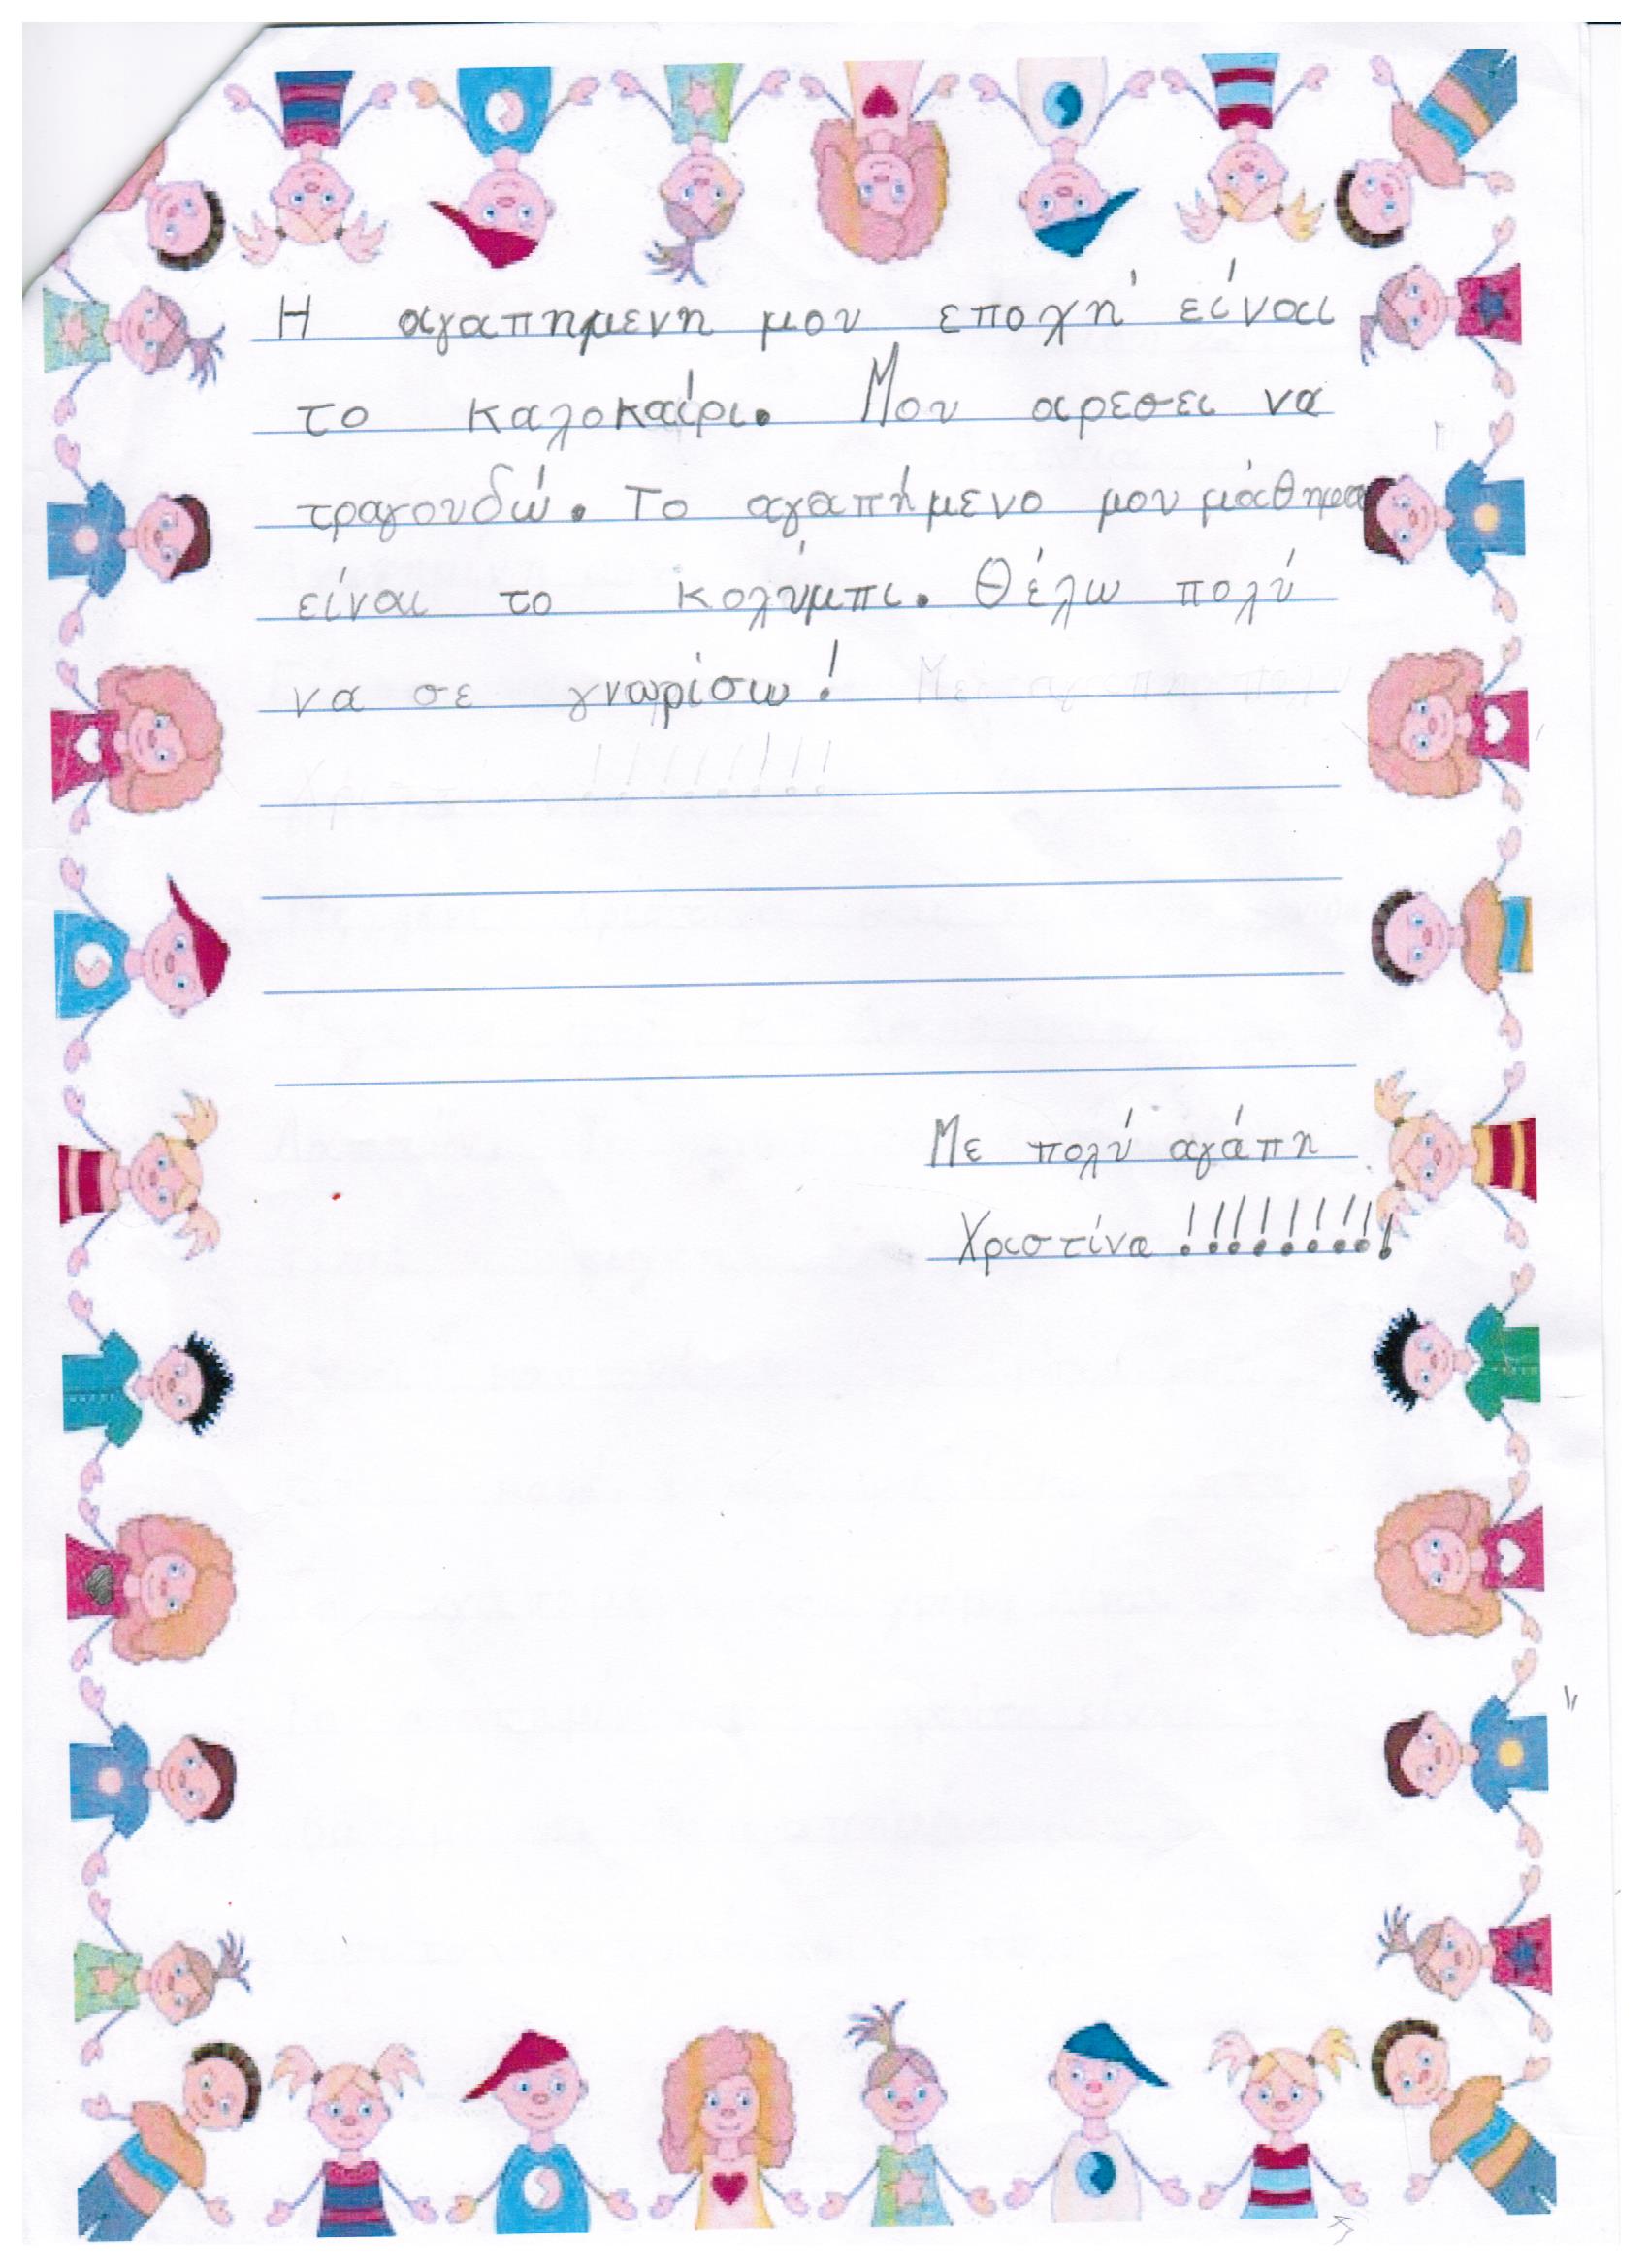 Η αγαπημενη μου εποχή είναι
το καλοκαίρι. Μου αρεσει να
τραγουδώ. Το αγαπήμενο μου μάθημα
είναι το κολύμπι. Θέλω πολύ
να σε γνωρίσω!
Με πολύ αγάπη
Χριστίνα !!!!!!!!!